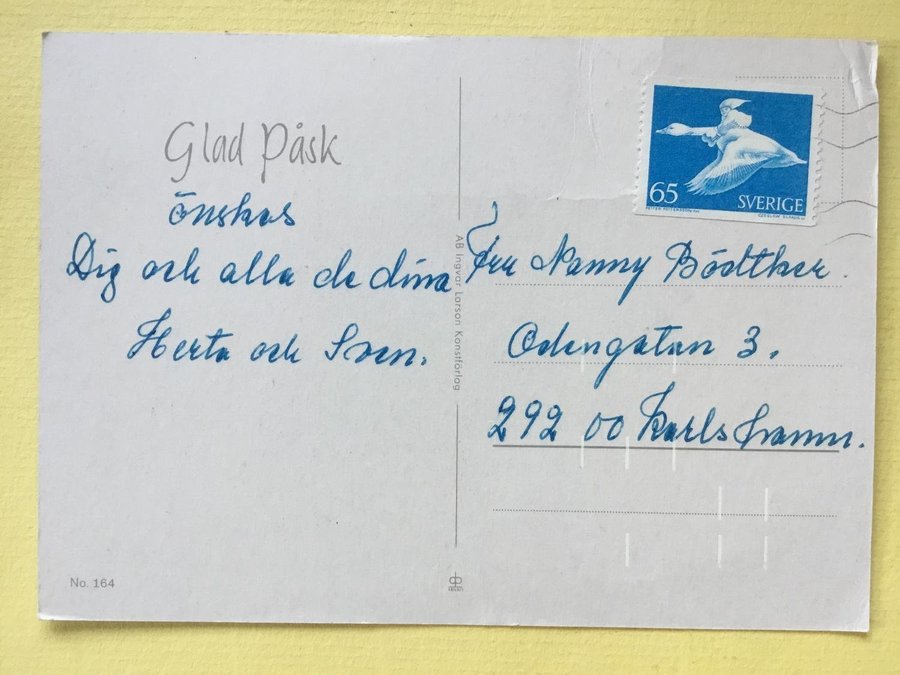 Glad Påsk
önskas
Dig och alla de dina
Herta och Sven.
No. 164
AB Ingvar Larson Konstförlag
65 SVERIGE
Fru Nanny Bödtker.
Odengatan 3.
292 00 Karlshamn.